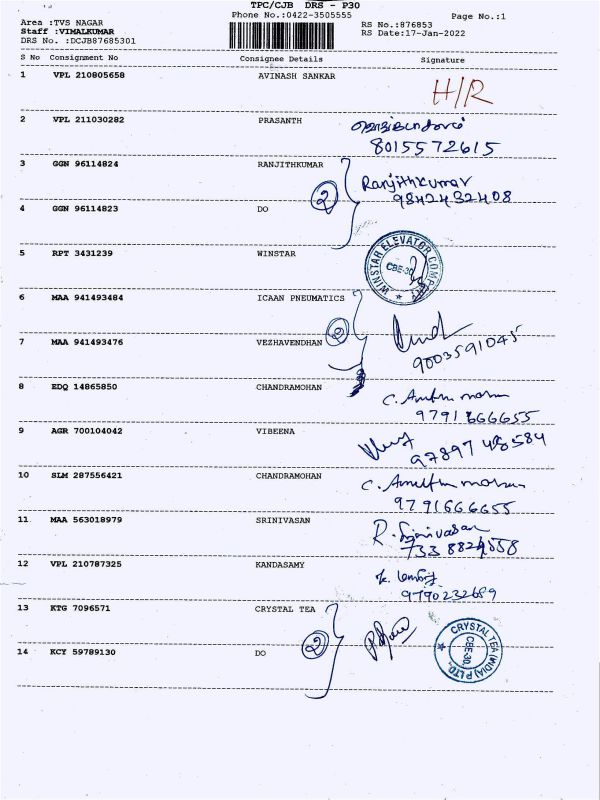 TPC/CJB DRS - P30
Phone No.:0422-3505555
Page No.:1
Area :TVS NAGAR
RS No.:876853
Staff :VIMALKUMAR
RS Date:17-Jan-2022
DRS No. :DCJB87685301
S No Consignment No Consignee Details Signature
1 VPL 210805658 AVINASH SANKAR
H/R
2 VPL 211030282 PRASANTH
8015572615
3 GGN 96114824 RANJITHKUMAR
Ranjithkumar
2
9842432408
4 GGN 96114823 DO
5 RPT 3431239 WINSTAR
WINSTAR ELEVATOR COMPANY
CBE-30
6 MAA 941493484 ICAAN PNEUMATICS
2
7 MAA 941493476 VEZHAVENDHAN
9003591045
8 EDQ 14865850 CHANDRAMOHAN
9791666655
9 AGR 700104042 VIBEENA
97897 48584
10 SLM 287556421 CHANDRAMOHAN
9791666655
11 MAA 563018979 SRINIVASAN
R. Srinivasan
12 VPL 210787325 KANDASAMY
9790232689
13 KTG 7096571 CRYSTAL TEA
2
CRYSTAL TEA (INDIA) P LTD.,
CBE-30.
14 KCY 59789130 DO